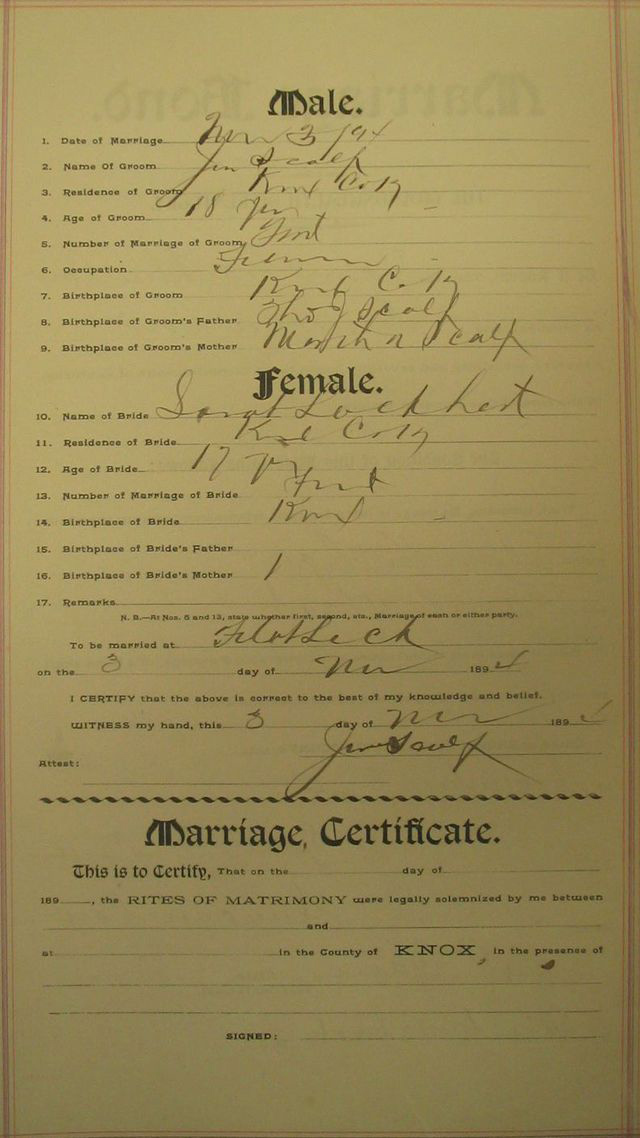 Male.
1. Date of Marriage Nov 3/94
2. Name Of Groom Jim Scalf
3. Residence of Groom Knox Co Ky
4. Age of Groom 18 yrs
5. Number of Marriage of Groom First
6. Occupation Farmer
7. Birthplace of Groom Knox Co Ky
8. Birthplace of Groom's Father Thos J Scalf
9. Birthplace of Groom's Mother Scalf
Female.
10. Name of Bride Sarah Lockhart
11. Residence of Bride Knox Co Ky
12. Age of Bride 17 yrs
13. Number of Marriage of Bride First
14. Birthplace of Bride Knox
15. Birthplace of Bride's Father
16. Birthplace of Bride's Mother
17. Remarks
N. B.—At Nos. 5 and 13, state whether first, second, etc., Marriage of each or either party.
To be married at
on the 3 day of Nov 1894
I CERTIFY that the above is correct to the best of my knowledge and belief.
WITNESS my hand, this 3 day of Nov 1894
Jim Scalf
Attest:
Marriage Certificate.
This is to Certify, That on the day of
189 , the RITES OF MATRIMONY were legally solemnized by me between
and
at in the County of KNOX, in the presence of
SIGNED: